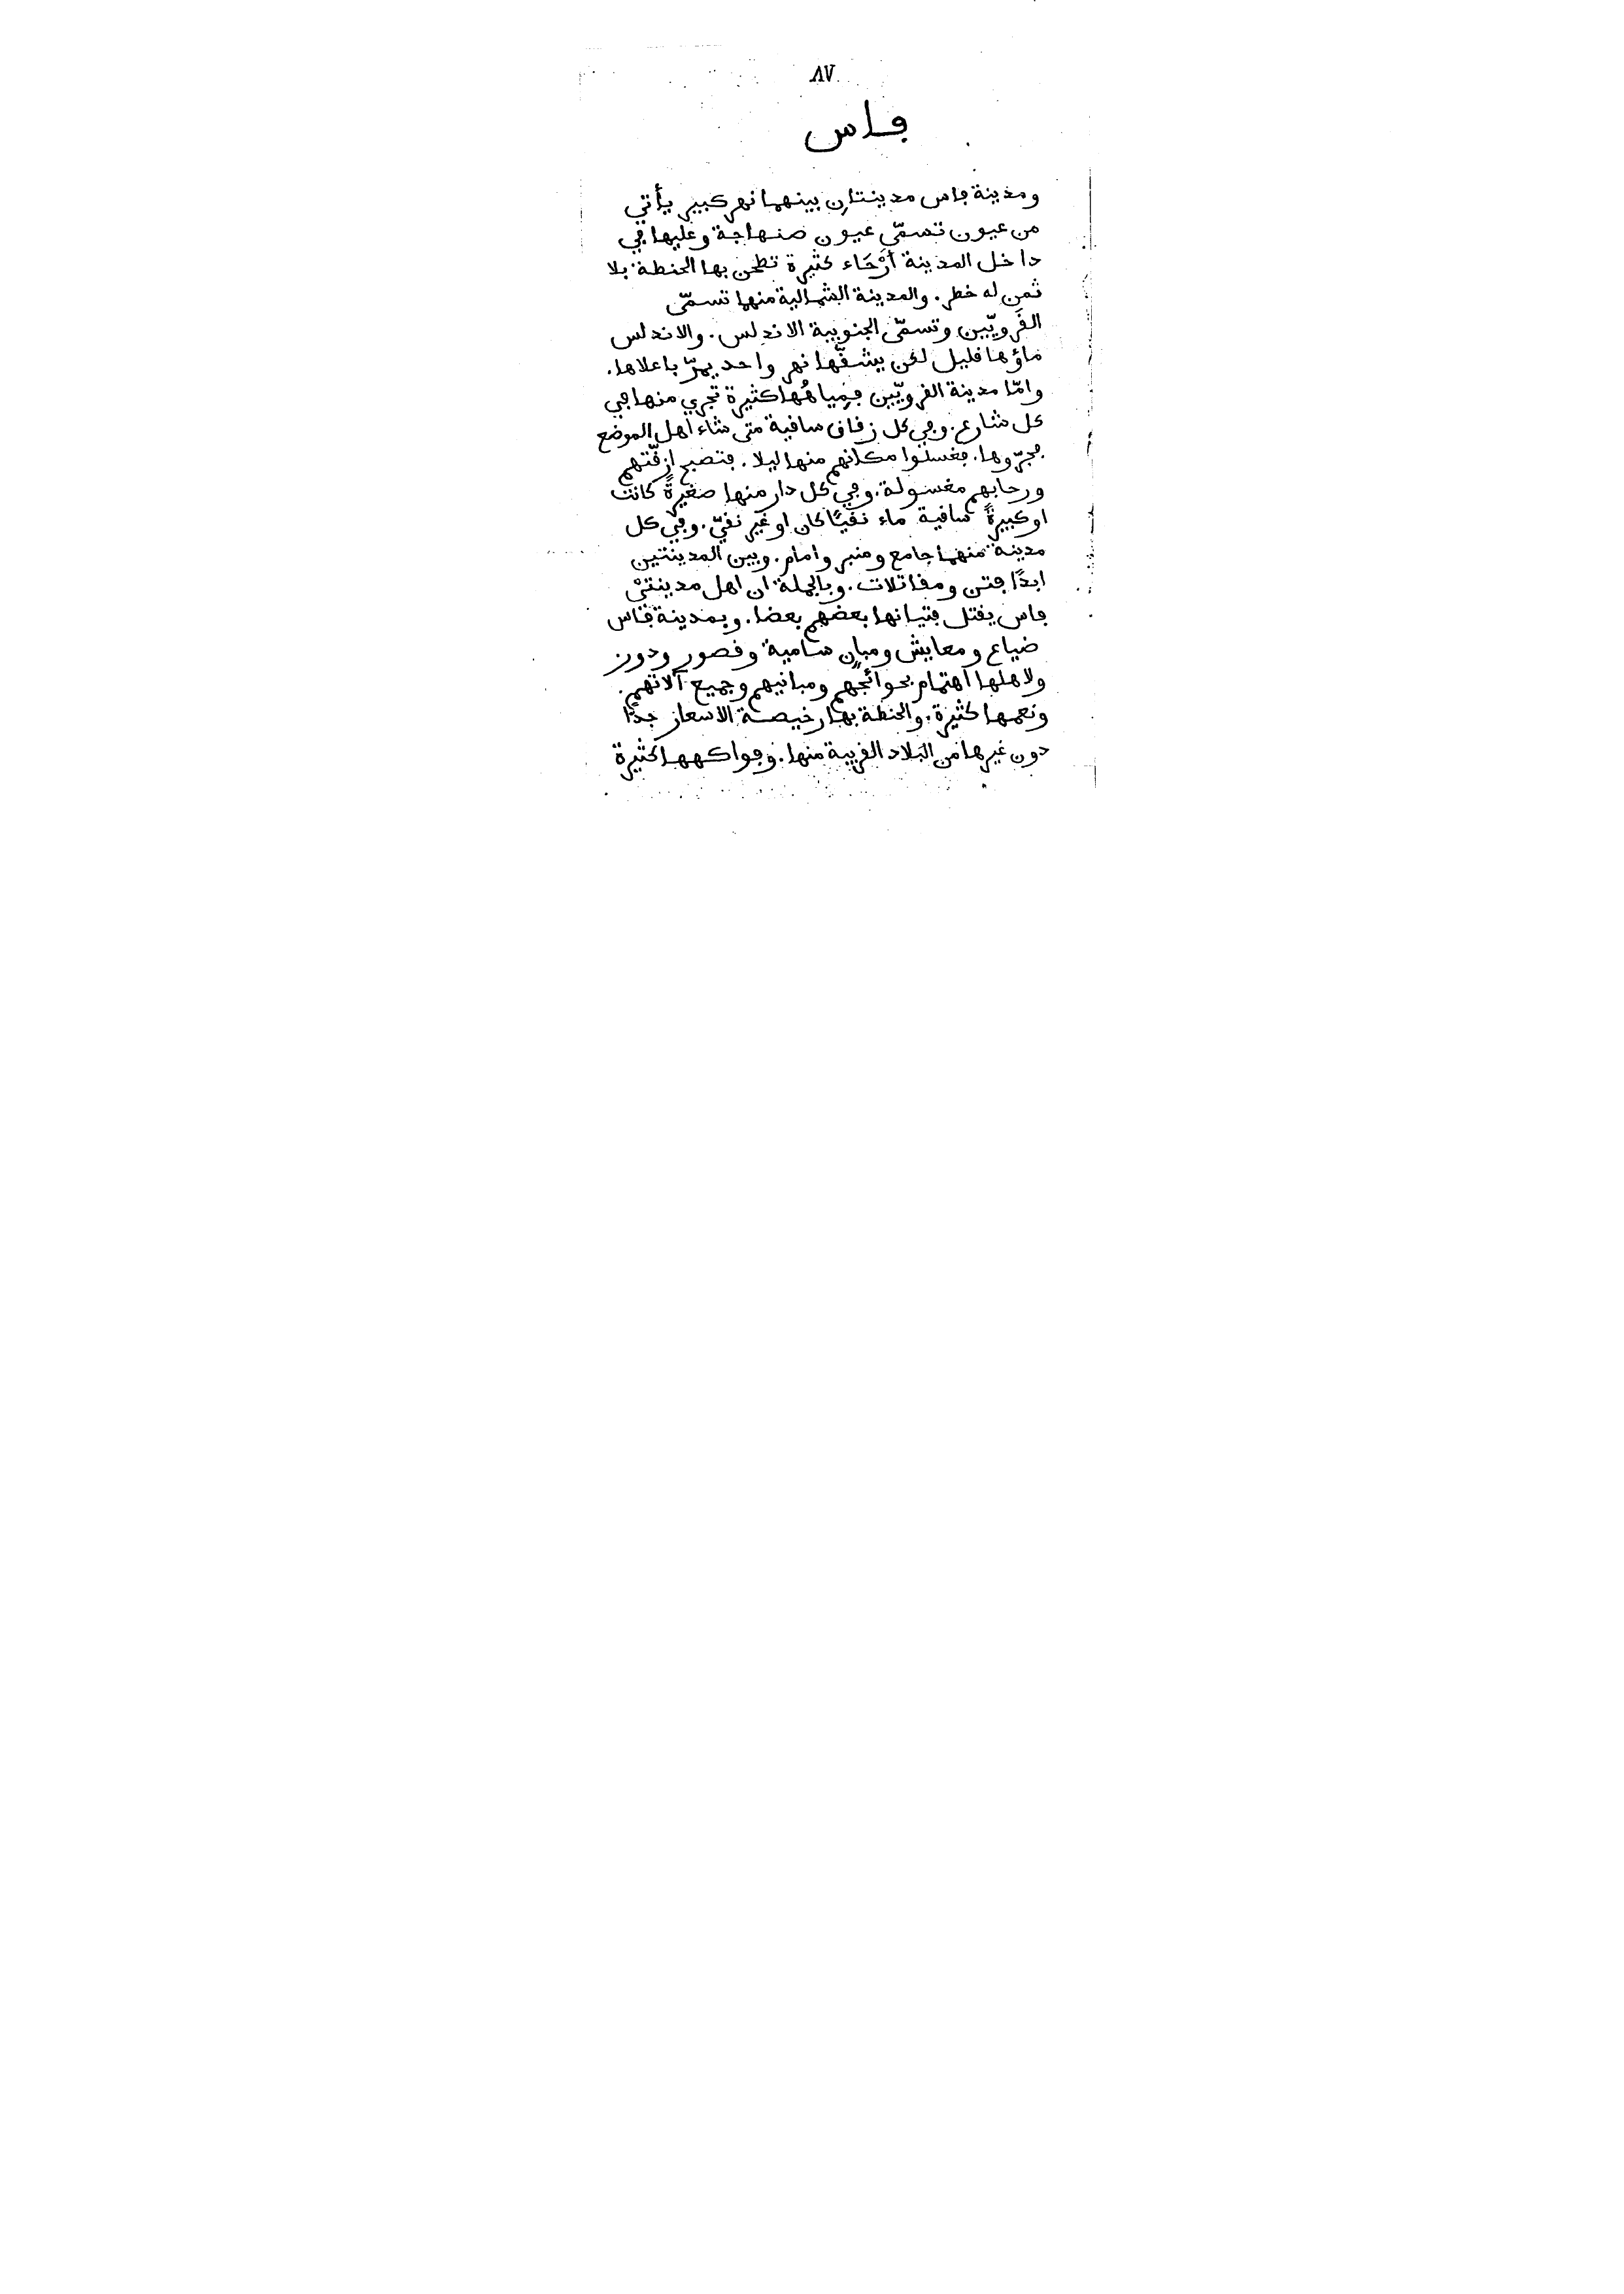 ٨٧
فاس
ومدينة فاس مدينتان بينهما نهر كبير يأتي
من عيون تسمّى عيون صنهاجة وعليها في
داخل المدينة أرْحَاء كثيرة تطحن بها الحنطة بلا
ثمن له خطر. والمدينة الشمالية منهما تسمّى
القَرويّين وتسمّى الجنوبية الاندلس. والاندلس
ماؤها قليل لكن يشقّها نهر واحد يمرّ باعلاها.
وامّا مدينة القرويّين فمِياهُها كثيرة تجري منها في
كل شارع. وفي كل زقاق ساقية متى شاء اهل الموضع
فجرّوها. فغسلوا مكانهم منها ليلا. فتصبح ازقّتهم
ورحابهم مغسولة. وفي كل دار منها صغيرةً كانت
او كبيرةً ساقية ماء نقيًّا كان او غير نقيّ. وفي كل
مدينة منهما جامع ومنبر وامام. وبين المدينتين
ابدًا فتن ومقاتلات. وبالجملة ان اهل مدينتيْ
فاس يقتل فتيانها بعضهم بعضا. وبمدينة فاس
ضياع ومعايش ومبانٍ سامية وقصور ودور
ولاهلها اهتمام بحوائجهم ومبانيهم وجميع آلاتهم.
ونعمها كثيرة. والحنطة بها رخيصة الاسعار جدًّا
دون غيرها من البلاد القريبة منها. وفواكهها كثيرة